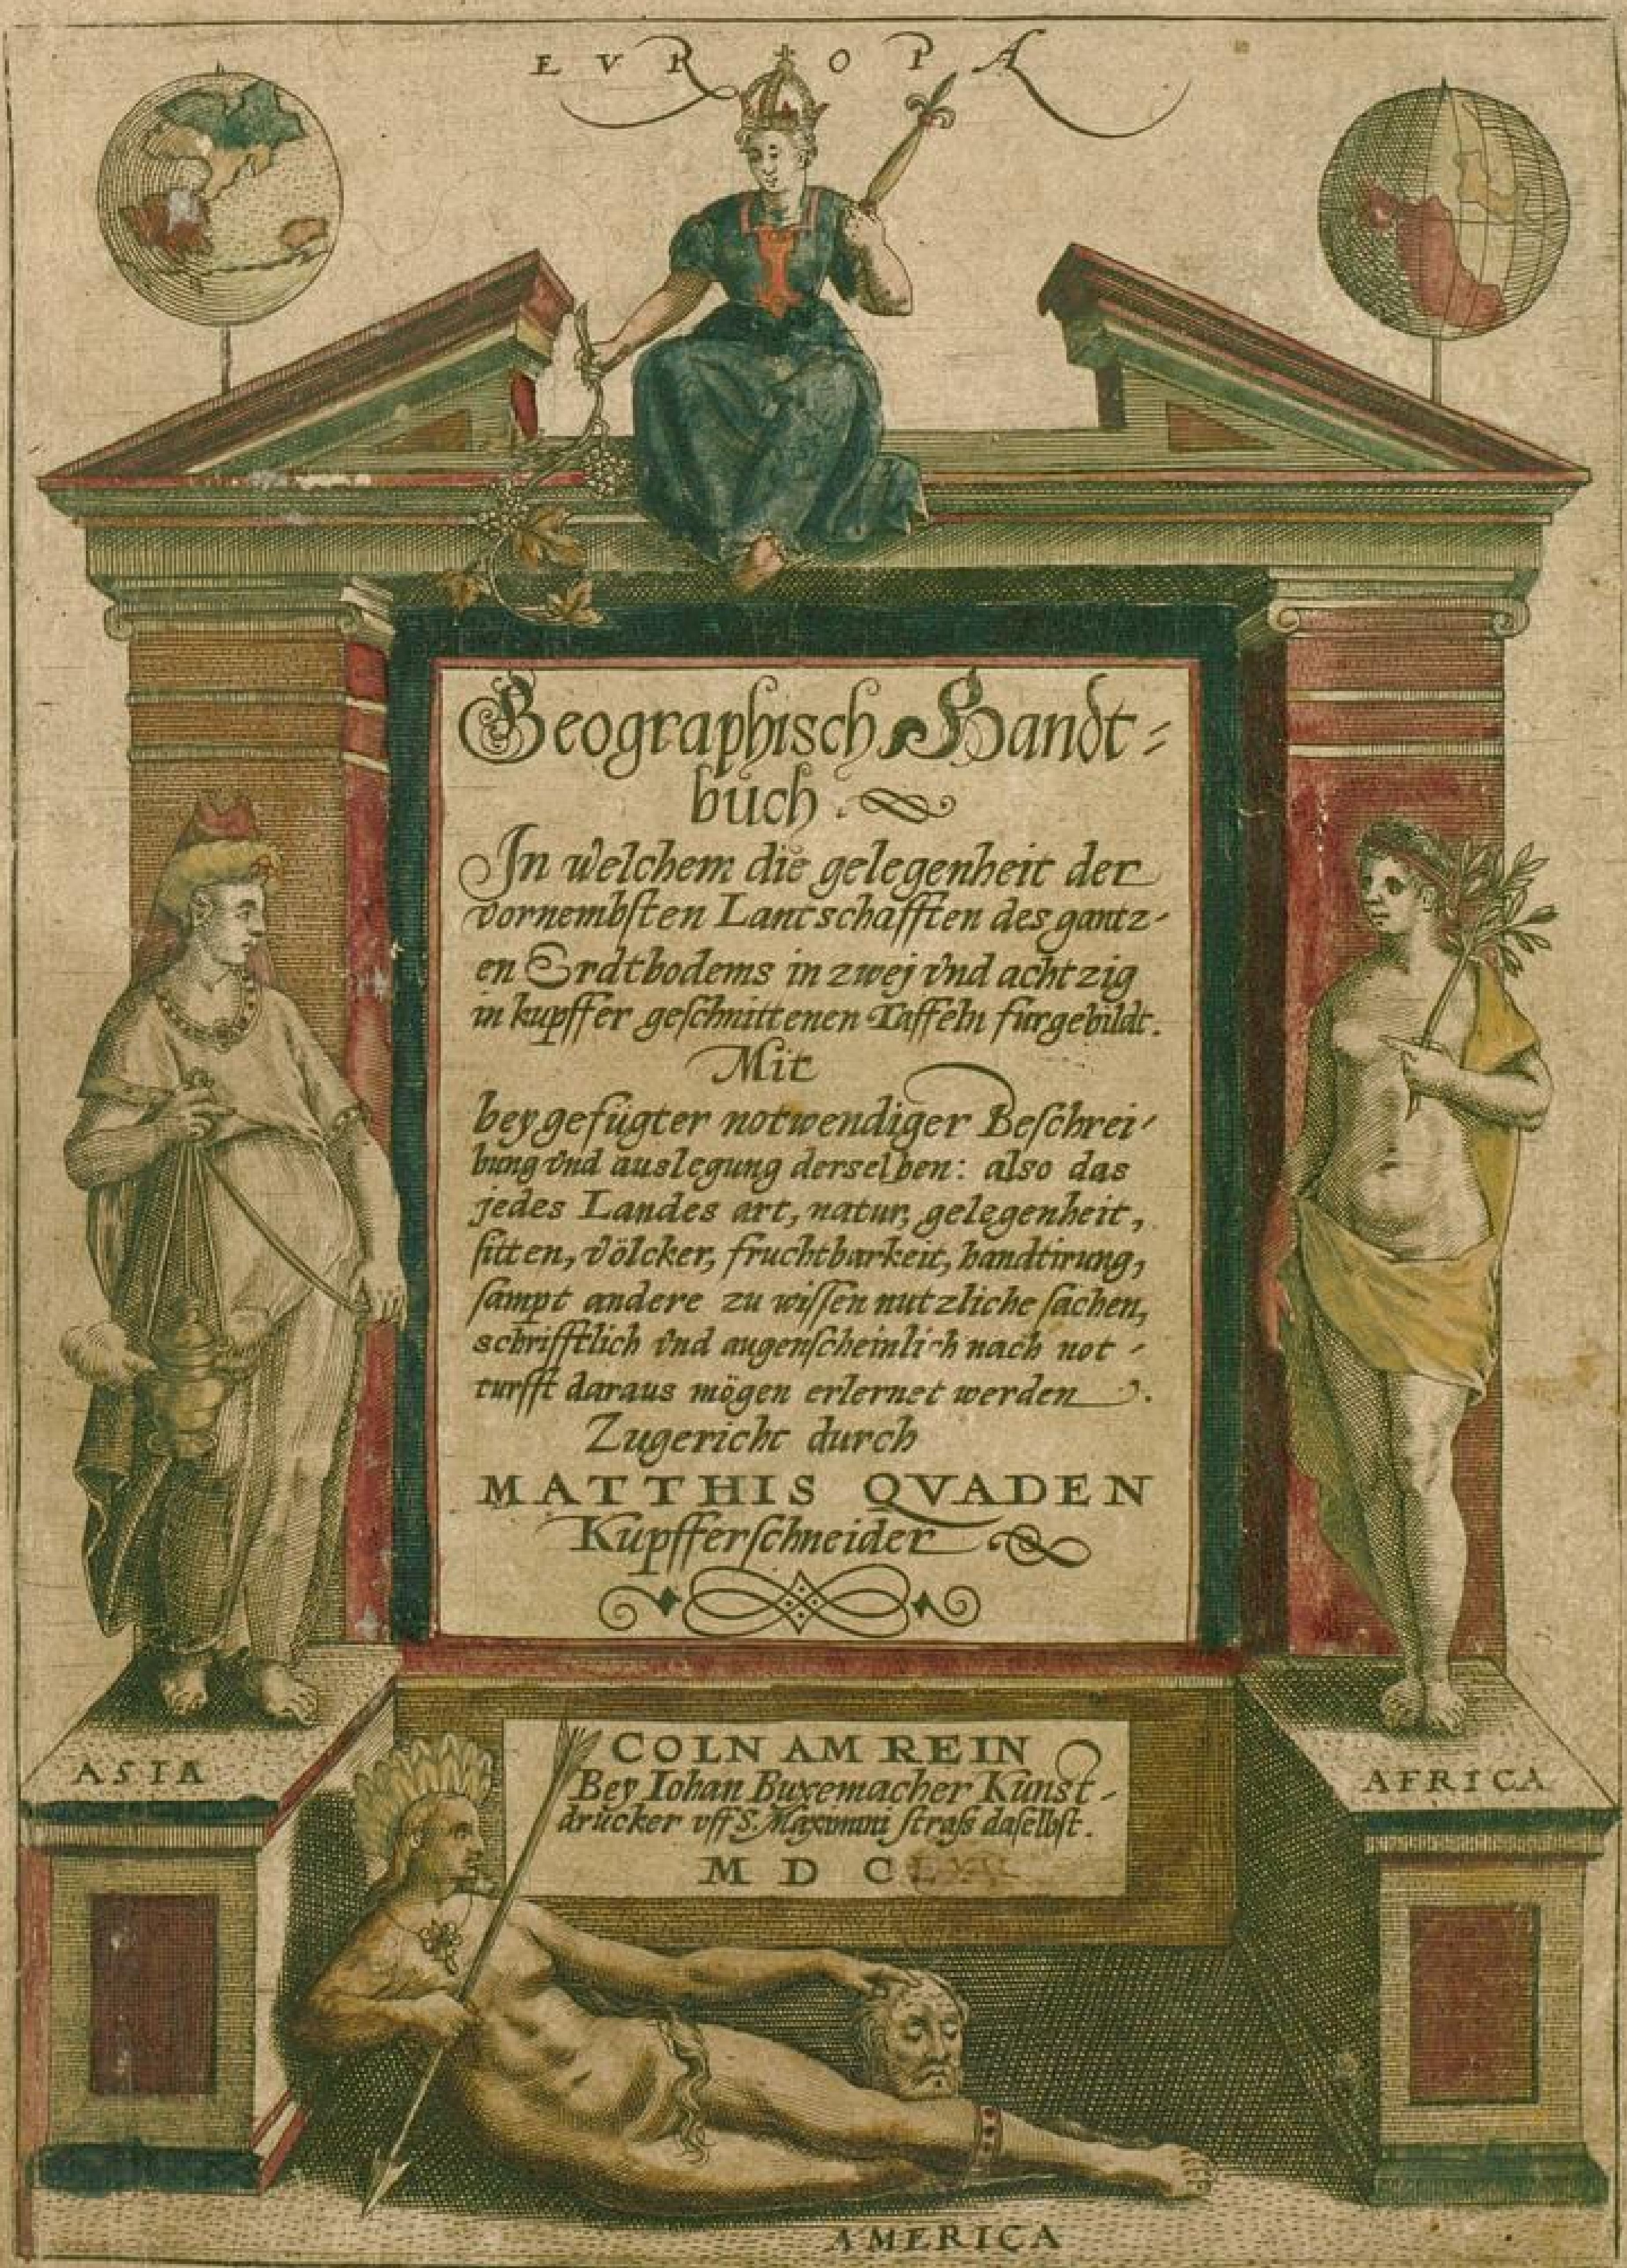 EVROPA
Geographisch Handt-
buch.
In welchem die gelegenheit der
vornembsten Lantschafften des gantz-
en Erdtbodems in zwej vnd achtzig
in kupffer geschnittenen Taffeln furgebildt.
Mit
beygefügter notwendiger Beschrei-
bung vnd auslegung derselben: also das
jedes Landes art, natur, gelegenheit,
sitten, völcker, fruchtbarkeit, handtirung,
sampt andere zu wissen nutzliche sachen,
schrifftlich vnd augenscheinlich nach not-
turfft daraus mögen erlernet werden.
Zugericht durch
MATTHIS QVADEN
Kupfferschneider
COLN AM REIN
Bey Iohan Buxemacher Kunst-
drucker vff S. Maximini strass daselbst.
M D C
ASIA
AFRICA
AMERICA